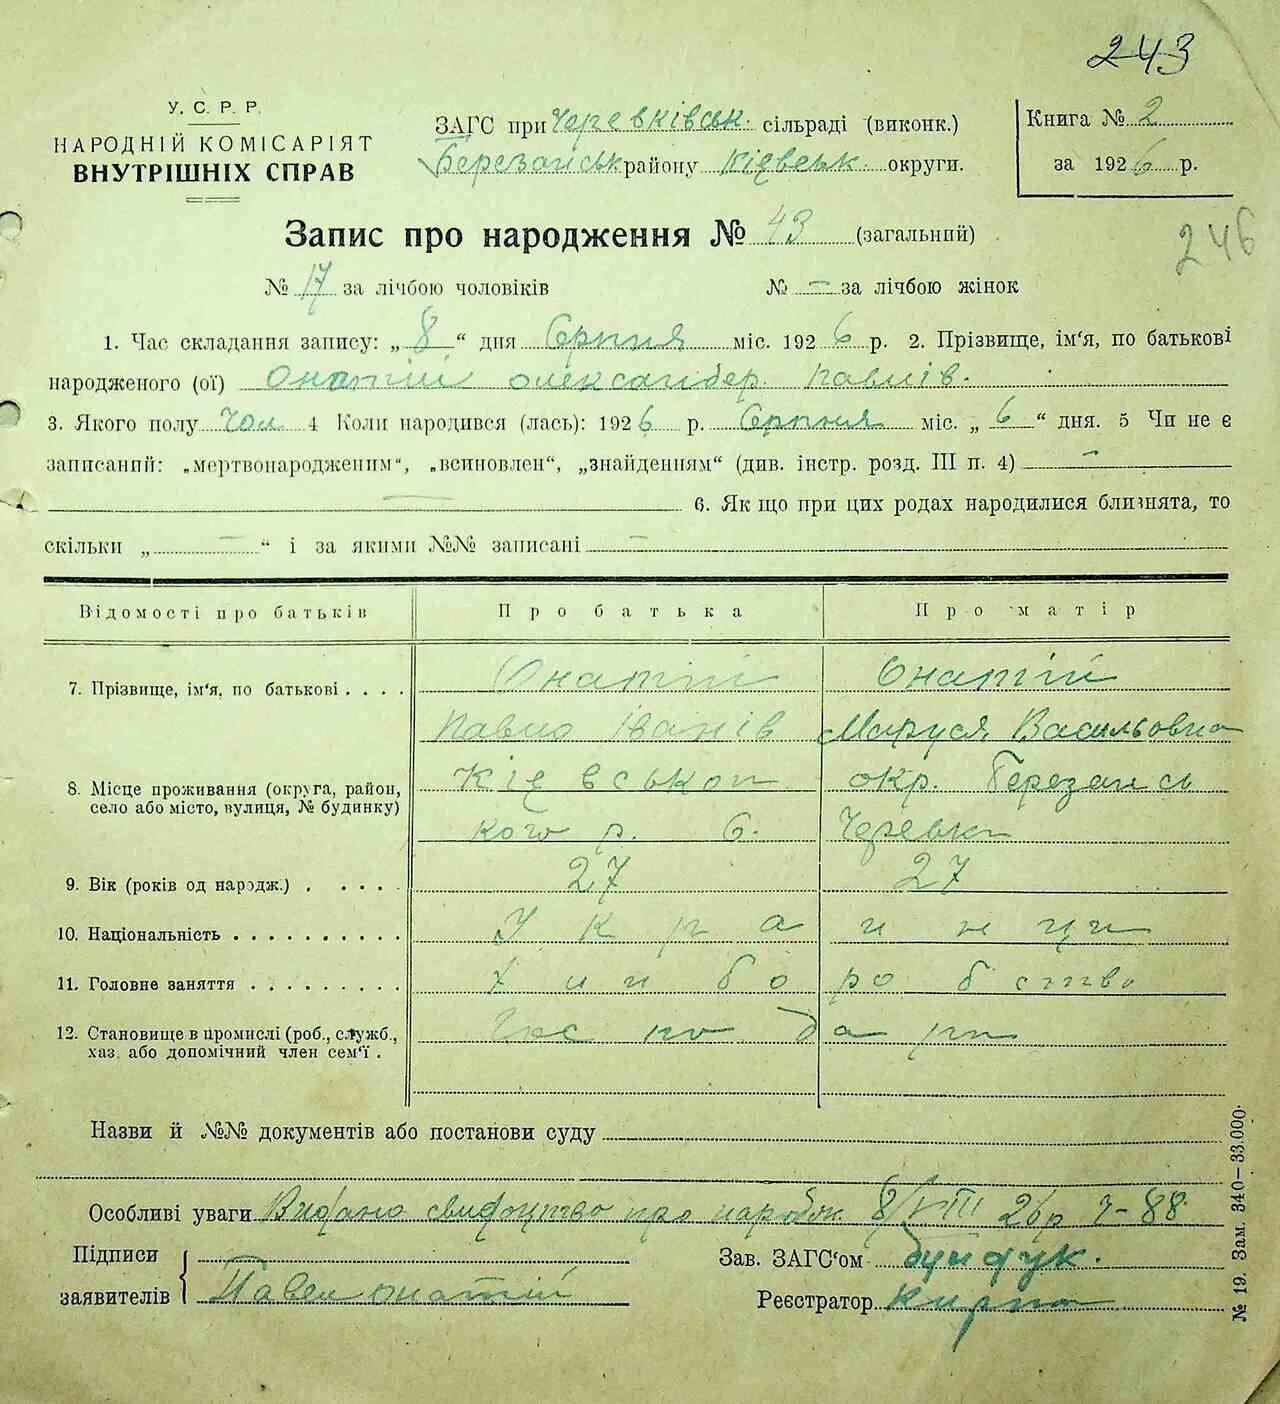 243
У. С. Р. Р.
НАРОДНІЙ КОМІСАРІЯТ
ВНУТРІШНІХ СПРАВ
ЗАГС при Черевківськ. сільраді (виконк.)
Березанськ району Київськ. округи.
Книга № 2
за 1926 р.
246
Запис про народження № 43 (загальний)
№ 17 за лічбою чоловіків № — за лічбою жінок
1. Час складання запису: „ 8 “ дня Серпня міс. 1926 р. 2. Прізвище, ім‘я, по батькові
народженого (ої) Онатій Олександер Павлів.
3. Якого полу Чол. 4 Коли народився (лась): 1926 р. Серпня міс. „ 6 “ дня. 5 Чи не є
записаний: „мертвонародженим“, „всиновлен“, „знайденням“ (див. інстр. розд. III п. 4) —
— 6. Якщо при цих родах народилися близнята, то
скільки „ — “ і за якими №№ записані —
Відомості про батьків Про батька Про матір
7. Прізвище, ім‘я, по батькові . . . . Онатій Онатій
Павло Іванів Маруся Васильовна
8. Місце проживання (округа, район, Київськоп окр. Березансь
село або місто, вулиця, № будинку)
кого р. с. Черевки
9. Вік (років од народж.) . . . . . 27 27
10. Національність . . . . . . . . . . Украинци
11. Головне заняття . . . . . . . . . Хлиборобство
12. Становище в промислі (роб., служб., Господарь
хаз. або допомічний член сем‘ї .
Назви й №№ документів або постанови суду
Особливі уваги Видано свидоцтво про народж. 8/VIII 26р 7-88
Підписи
заявителів Павел Онатій
Зав. ЗАГС‘ом Бундук.
Реєстратор Кирпа
№ 19. Зам. 340—33.000.